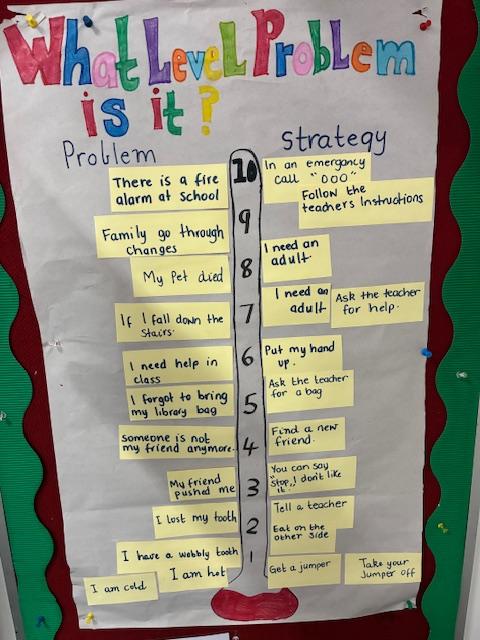 What Level Problem
is it?
Problem
Strategy
10
There is a fire
alarm at school
In an emergency
call "000"
Follow the
teachers Instructions
9
Family go through
changes
I need an
adult.
8
My Pet died
7
If I fall down the
stairs.
I need an
adult
Ask the teacher
for help.
6
I need help in
class
Put my hand
up.
5
I forgot to bring
my library bag
Ask the teacher
for a bag
4
someone is not
my friend anymore.
Find a new
friend.
3
My friend
pushed me
"You can say
"Stop, I don't like
it"
2
I lost my tooth
Tell a teacher
1
I have a wobbly tooth
Eat on the
other side
I am cold
I am hot
Get a jumper
Take your
Jumper off